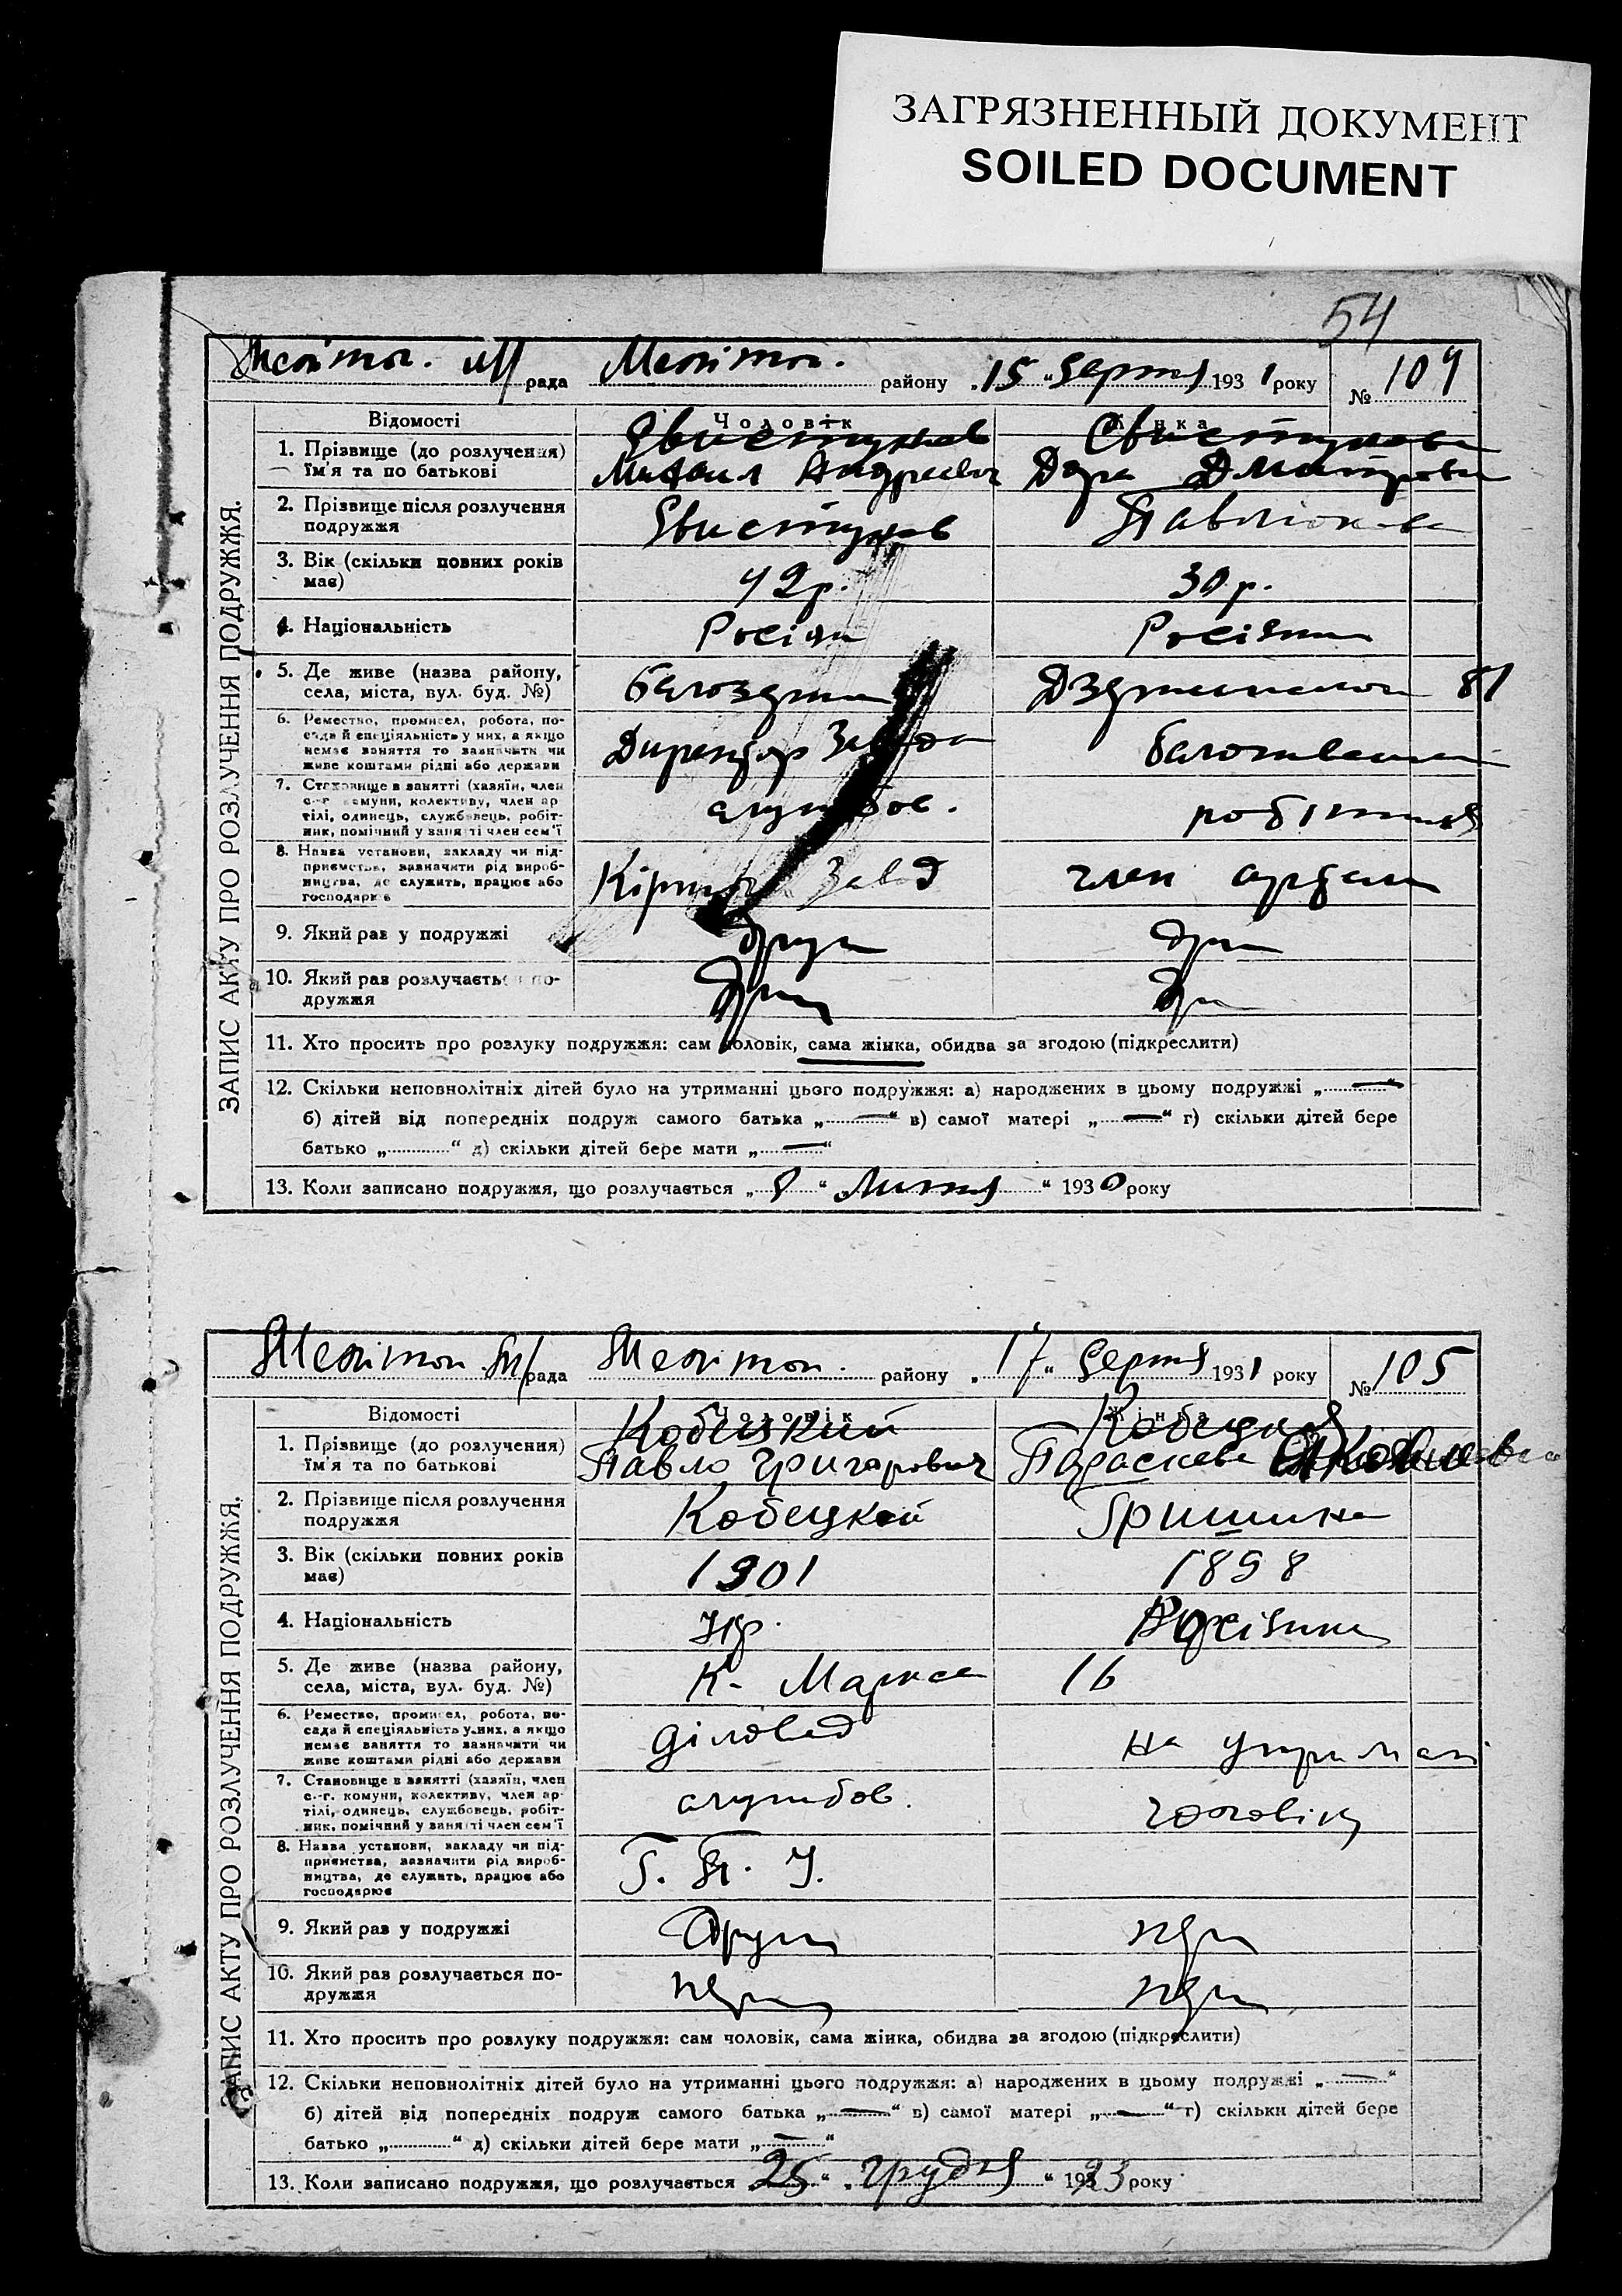 ЗАГРЯЗНЕННЫЙ ДОКУМЕНТ
SOILED DOCUMENT
54
рада Мелітоп. району „15 “ Серпня 1931 року № 104
ЗАПИС АКТУ ПРО РОЗЛУЧЕННЯ ПОДРУЖЖЯ.
Відомості Чоловік Жінка
1. Прізвище (до розлучення) Свистунов Свистунова
їм'я та по батькові Михаил Андреевич Дмитровна
2. Прізвище після розлучення
подружжя Свистунов Павлюкова
3. Вік (скільки повних років
має) 42 р. 30 р.
4. Національність Росіян Росіянка
5. Де живе (назва району,
села, міста, вул. буд. №) 81
6. Ремество, промисел, робота, по-
сада й спеціяльність у них, а якщо
немає заняття то зазначити чи Директор Завода
живе коштами рідні або держави
7. Становище в занятті (хазяїн, член
с.-г. комуни, колективу, член ар-
тілі, одинець, службовець, робіт- службов. робітниця
ник, помічний у занятті член сем'ї
8. Назва установи, закладу чи під-
приємства, зазначити рід вироб-
ництва, де служить, працює або Завод член артели
господарює
9. Який раз у подружжі други други
10. Який раз розлучається по-
дружжя други други
11. Хто просить про розлуку подружжя: сам чоловік, сама жінка, обидва за згодою (підкреслити)
12. Скільки неповнолітніх дітей було на утриманні цього подружжя: а) народжених в цьому подружжі „—“
б) дітей від попередніх подруж самого батька „—“ в) самої матері „—“ г) скільки дітей бере
батько „............“ д) скільки дітей бере мати „—“
13. Коли записано подружжя, що розлучається „8“ „Липня“ 1930 року
Мелітоп. рада Мелітоп. району „17“ Серпня 1931 року № 105
ЗАПИС АКТУ ПРО РОЗЛУЧЕННЯ ПОДРУЖЖЯ.
Відомості Чоловік Жінка
1. Прізвище (до розлучення) Кобецкий Кобецкая
їм'я та по батькові Павло Григорович Параскева Яковлевна
2. Прізвище після розлучення
подружжя Кобецкий Гришина
3. Вік (скільки повних років
має) 1901 1898
4. Національність Укр. Росіянка
5. Де живе (назва району,
села, міста, вул. буд. №) К. Маркса 16
6. Ремество, промисел, робота, по-
сада й спеціяльність у них, а якщо діловод
немає заняття то зазначити чи на утриман
живе коштами рідні або держави
7. Становище в занятті (хазяїн, член
с.-г. комуни, колективу, член ар- службов.
тілі, одинець, службовець, робіт- чоловіка
ник, помічний у занятті член сем'ї
8. Назва установи, закладу чи під-
приємства, зазначити рід вироб- Г. П. У.
ництва, де служить, працює або
господарює
9. Який раз у подружжі други перш
10. Який раз розлучається по-
дружжя перш перш
11. Хто просить про розлуку подружжя: сам чоловік, сама жінка, обидва за згодою (підкреслити)
12. Скільки неповнолітніх дітей було на утриманні цього подружжя: а) народжених в цьому подружжі „—“
б) дітей від попередніх подруж самого батька „—“ в) самої матері „—“ г) скільки дітей бере
батько „............“ д) скільки дітей бере мати „—“
13. Коли записано подружжя, що розлучається „25“ „грудня“ 1923 року